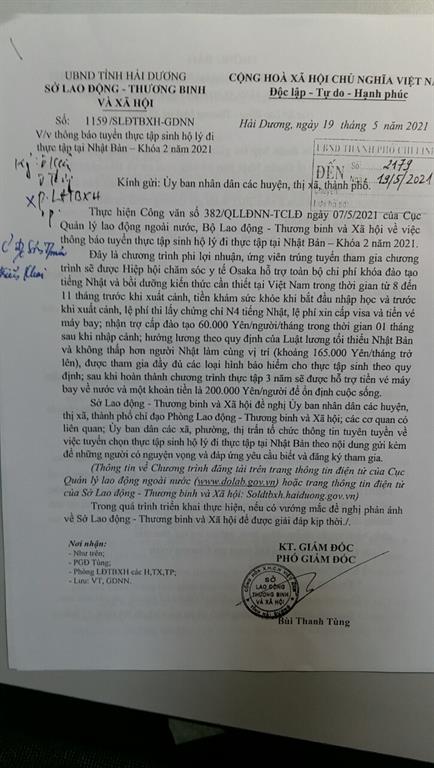 UBND TỈNH HẢI DƯƠNG
SỞ LAO ĐỘNG - THƯƠNG BINH
VÀ XÃ HỘI
Số: 1159/SLĐTBXH-GDNN
V/v thông báo tuyển thực tập sinh hộ lý đi
thực tập tại Nhật Bản – Khóa 2 năm 2021
CỘNG HOÀ XÃ HỘI CHỦ NGHĨA VIỆT NA
Độc lập - Tự do - Hạnh phúc
Hải Dương, ngày 19 tháng 5 năm 2021
UBND THÀNH PHỐ CHÍ LINH
ĐẾN
Số: 2179
Ngày 19/5/2021
P. LĐTBXH
Kính gửi: Ủy ban nhân dân các huyện, thị xã, thành phố.
Thực hiện Công văn số 382/QLLĐNN-TCLĐ ngày 07/5/2021 của Cục
Quản lý lao động ngoài nước, Bộ Lao động - Thương binh và Xã hội về việc
thông báo tuyển thực tập sinh hộ lý đi thực tập tại Nhật Bản – Khóa 2 năm 2021.
Đây là chương trình phi lợi nhuận, ứng viên trúng tuyển tham gia chương
trình sẽ được Hiệp hội chăm sóc y tế Osaka hỗ trợ toàn bộ chi phí khóa đào tạo
tiếng Nhật và bồi dưỡng kiến thức cần thiết tại Việt Nam trong thời gian từ 8 đến
11 tháng trước khi xuất cảnh, tiền khám sức khỏe khi bắt đầu nhập học và trước
khi xuất cảnh, lệ phí thi lấy chứng chỉ N4 tiếng Nhật, lệ phí xin cấp visa và tiền vé
máy bay; nhận trợ cấp đào tạo 60.000 Yên/người/tháng trong thời gian 01 tháng
sau khi nhập cảnh; hưởng lương theo quy định của Luật lương tối thiểu Nhật Bản
và không thấp hơn người Nhật làm cùng vị trí (khoảng 165.000 Yên/tháng trở
lên), được tham gia đầy đủ các loại hình bảo hiểm cho thực tập sinh theo quy
định; sau khi hoàn thành chương trình thực tập 3 năm sẽ được hỗ trợ tiền vé máy
bay về nước và một khoản tiền là 200.000 Yên/người để ổn định cuộc sống.
Sở Lao động - Thương binh và Xã hội đề nghị Ủy ban nhân dân các huyện,
thị xã, thành phố chỉ đạo Phòng Lao động - Thương binh và Xã hội; các cơ quan có
liên quan; Ủy ban các xã, phường, thị trấn tổ chức thông tin tuyên tuyền về
việc tuyển chọn thực tập sinh hộ lý đi thực tập tại Nhật Bản theo nội dung gửi kèm
để những người có nguyện vọng và đáp ứng yêu cầu biết và đăng ký tham gia.
(Thông tin về Chương trình đăng tải trên trang thông tin điện tử của Cục
Quản lý lao động ngoài nước (www.dolab.gov.vn) hoặc trang thông tin điện tử
của Sở Lao động - Thương binh và Xã hội: Soldtbxh.haiduong.gov.vn)
Trong quá trình triển khai thực hiện, nếu có vướng mắc đề nghị phản ánh
về Sở Lao động - Thương binh và Xã hội để được giải đáp kịp thời./.
Nơi nhận:
- Như trên;
- PGĐ Tùng;
- Phòng LĐTBXH các H,TX,TP;
- Lưu: VT, GDNN.
KT. GIÁM ĐỐC
PHÓ GIÁM ĐỐC
SỞ
LAO ĐỘNG
THƯƠNG BINH
VÀ XÃ HỘI
Bùi Thanh Tùng